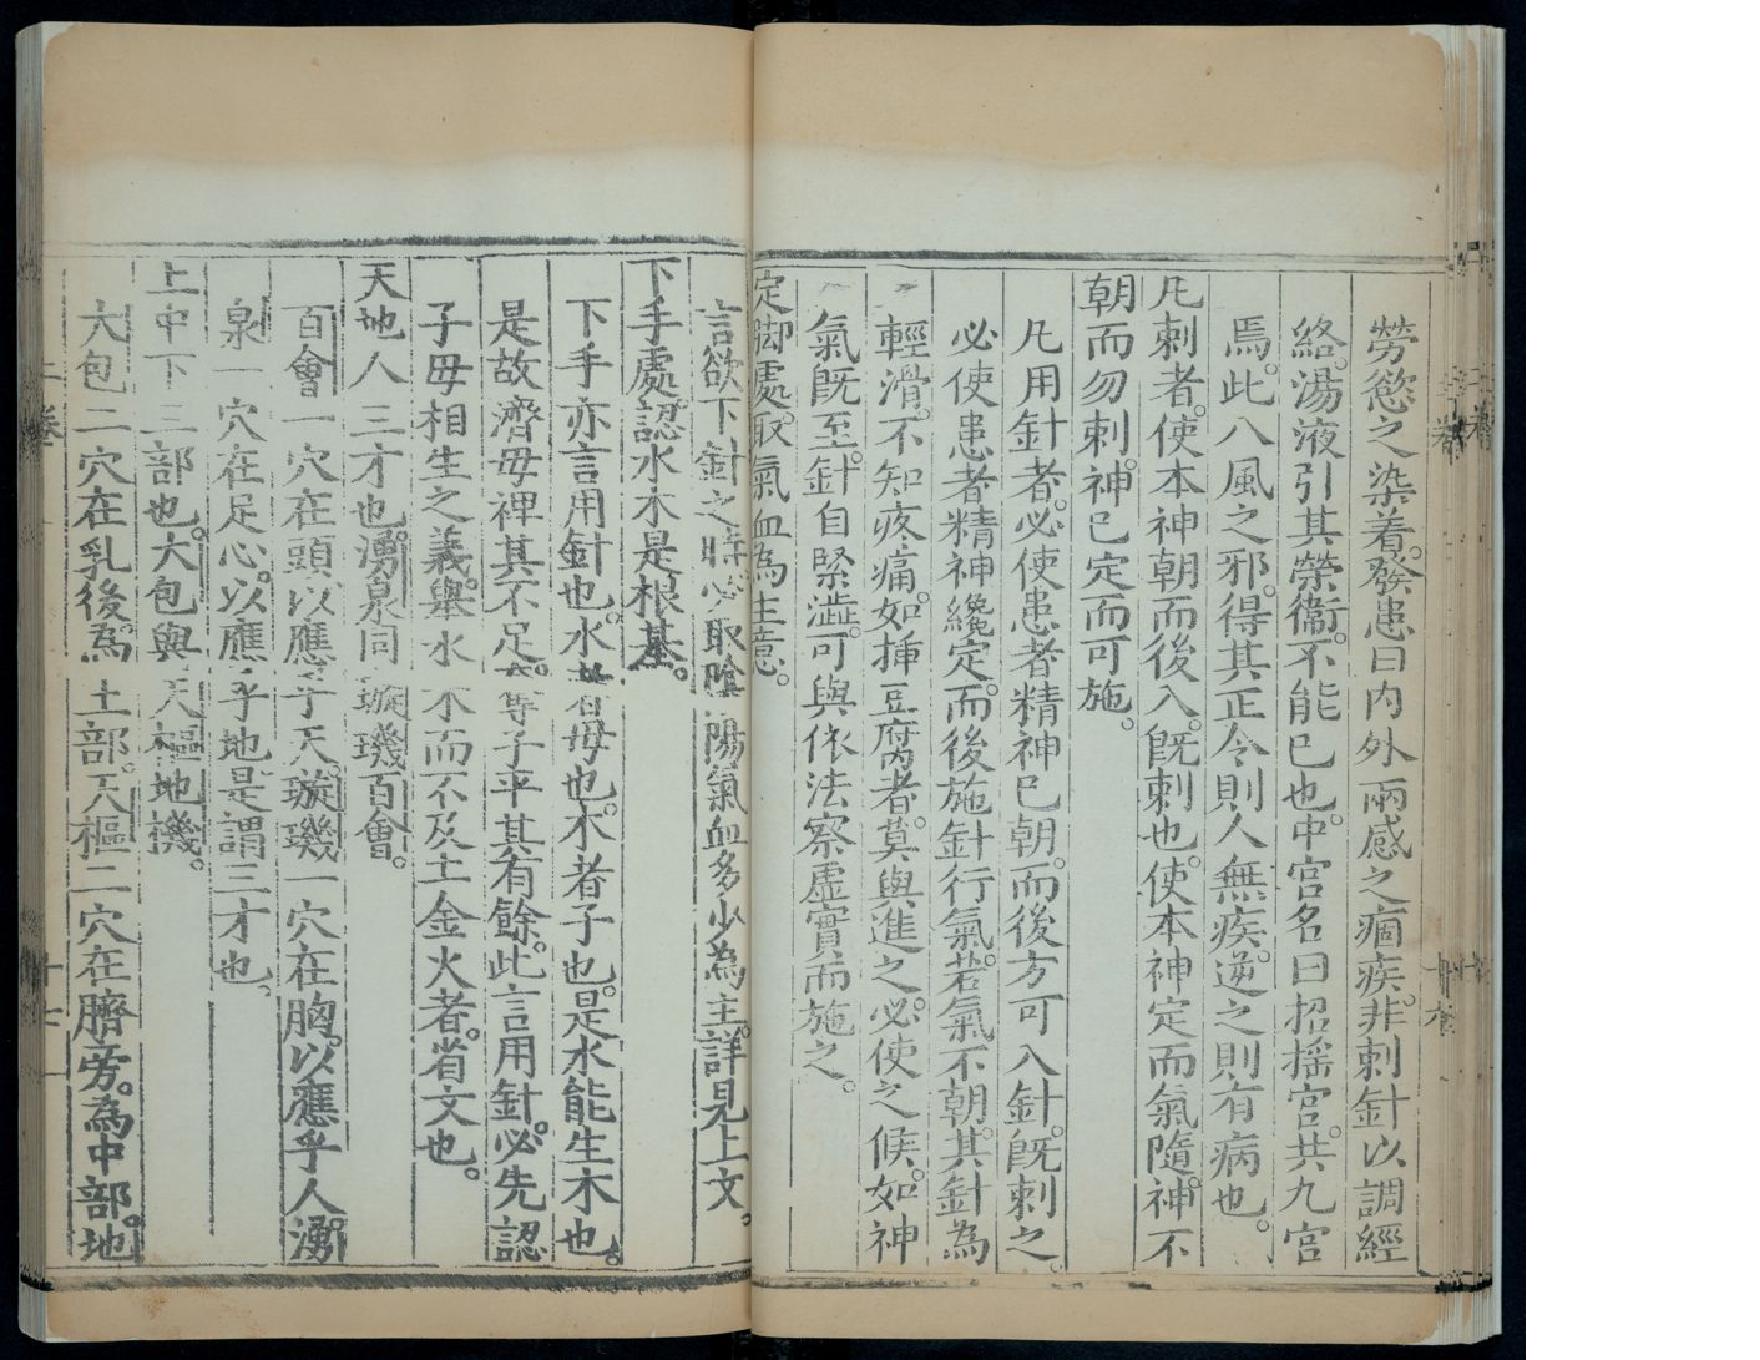 勞慾之染着。發患曰内外兩感之痼疾。非刺針以調經
絡。湯液引其榮衞。不能已也。中宮名曰招揺宮。共九宮
焉。此八風之邪。得其正令則人無疾。逆之則有病也。
凡刺者。使本神朝而後入。既刺也。使本神定而氣隨。神不
朝而勿刺。神已定而可施。
凡用針者。必使患者精神已朝。而後方可入針。既刺之。
必使患者精神纔定。而後施針行氣。若氣不朝。其針為
輕滑。不知疼痛。如揷豆腐者。莫與進之。必使之候。如神
氣既至。針自緊澁。可與依法察虛實而施之。
定脚處。取氣血為主意。
言欲下針之時。必取陰陽氣血多少為主。詳見上文。
下手處。認水木是根基。
下手亦言用針也。水者母也。木者子也。是水能生木也。
是故濟母裨其不足。奪子平其有餘。此言用針。必先認
子母相生之義。舉水木而不及土金火者。省文也。
天地人三才也。湧泉同璇璣百會。
百會一穴在頭以應乎天。璇璣一穴在胸。以應乎人。湧
泉一穴在足心。以應乎地。是謂三才也。
上中下三部也。大包與天樞地機。
大包二穴在乳後。為上部。天樞二穴在臍旁。為中部。地
二卷